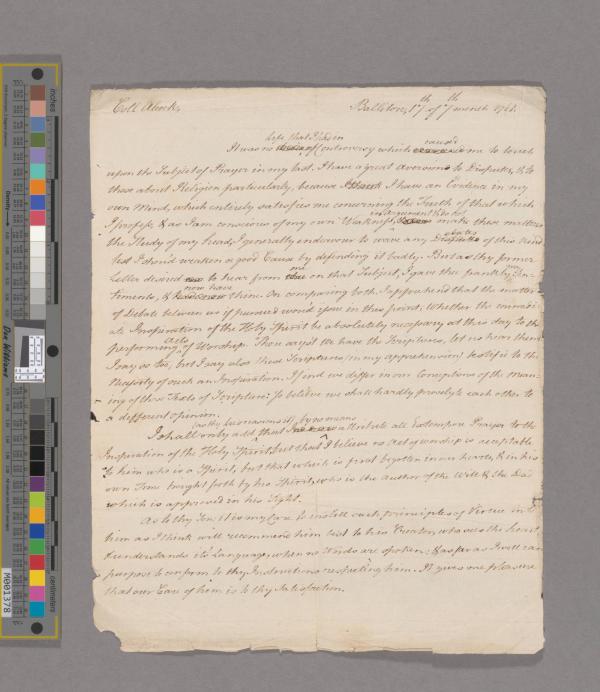 Coll Alnck,
Ballston, 17th of 7th month 1761.
hope that I had in caus'd
It was no of Controversy which me to touch
upon the Subject of Prayer in my last. I have a great Aversion to Disputes, & to
those about Religion particularly, because I have an Evidence in my
own Mind, which entirely satisfies me concerning the Truth of that which
in argument & do not
I profess; & as I am conscious of my own Weakness, make these matters
the Study of my head, I generally endeavour to wave any debates of this kind
lest I should weaken a good Cause by defending it badly. But as thy former
me
Letter desired to hear from on that Subject, I gave thee frankly my Sen-
now have
timents, & thine. On comparing both I apprehend that the matter
of Debate between us if pursued would issue in this point; Whether the immedi-
ate Inspiration of the Holy Spirit be absolutely necessary at this day to the
acts
performing of Worship. Thou sayst we have the Scriptures, let us hear them
I say so too, but I say also these Scriptures in my apprehension testifie to the
Necessity of such an Inspiration. If indeed we differ in our Conceptions of the Mean-
ing of those Texts of Scripture I believe we shall hardly proselyte each other to
a different opinion.
by no means
I shall only add that I attribute all Extempore Prayer to the
Inspiration of the Holy Spirit but that I believe no Act of worship is acceptable
to him who is a Spirit, but that which is first begotten in our hearts, & in his
own Time brought forth by his Spirit, who is the Author of the Will & the Deed
which is approved in his Sight.
As to thy Son; it is my Care to instill such principles of Virtue into
him as I think will recommend him best to his Creator, who sees the heart
& understands its Language, when no Words are spoken; & as far as I well can
purpose to conform to thy Instructions respecting him. It gives me pleasure
that our Care of him is to thy Satisfaction.
inches
centimeters
Don Williams
M001378